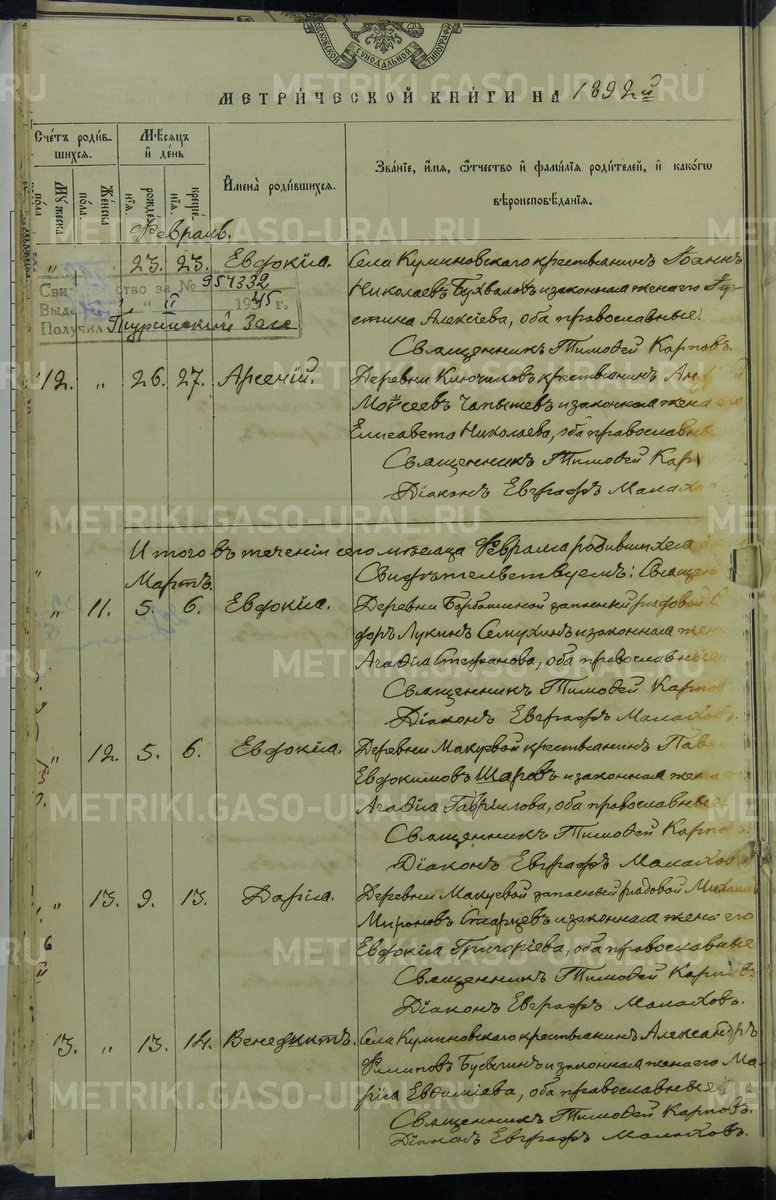 МЕТРИЧЕСКОЙ КНИГИ НА 1892й
Счетъ родив-
шихся.
Мѣсяцъ
и день
Имена родившихся.
Званіе, имя, отчество и фамилія родителей, и какого
вѣроисповѣданія.
Мужеска
пола.
Женска
пола.
рожде-
нія.
креще-
нія.
Февраль.
„ 23. 23. Евдокія. Села Куминовскаго крестьянинъ Іоаннъ
Николаевъ Бухваловъ и законная жена его Іу-
стина Алексіева, оба православные.
Свящeнникъ Тимофей Карповъ.
Сви ство за № 957332
Выд „ II 1945 г.
Получил Туринский Загс
12. „ 26. 27. Арсеній. Деревни Ключиковъ крестьянинъ
Моѵсеевъ Чапышевъ и законная жена его
Елисавета Николаева, оба православные
Священникъ Тимофей Кар
Діаконъ Евграфъ Малахо
Итого въ теченіи сего мѣсяца Февраля родившихся
Мартъ. Свидѣтельствуемъ: Священ
„ 11. 5. 6. Евдокія. Деревни Барбашиной запасный рядовой С
доръ Лукинъ Семухинъ и законная жен
Агафія Стефанова, оба православные.
Священникъ Тимофей Карпов
Діаконъ Евграфъ Малаховъ.
„ 12. 5. 6. Евдокія. Деревни Макуевой крестьянинъ Паве
Евдокимовъ Шаровъ и законная жена
Агафія Гавріилова, оба православные
Священникъ Тимофей Карпов
Діаконъ Евграфъ Малаховъ
„ 13. 9. 13. Дарія. Деревни Макуевой запасный рядовой Михаилъ
Мироновъ Старцевъ и законная жена его
Евдокія Григоріева, оба православные
Священникъ Тимофей Карповъ
Діаконъ Евграфъ Малаховъ.
13. „ 13. 14. Венедиктъ. Села Куминовскаго крестьянинъ Александръ
Филиповъ Бусыгинъ и законная жена его Ма-
рія Евфиміева, оба православные.
Священникъ Тимофей Карповъ.
Діаконъ Евграфъ Малаховъ.
METRIKI.GASO-URAL.RU